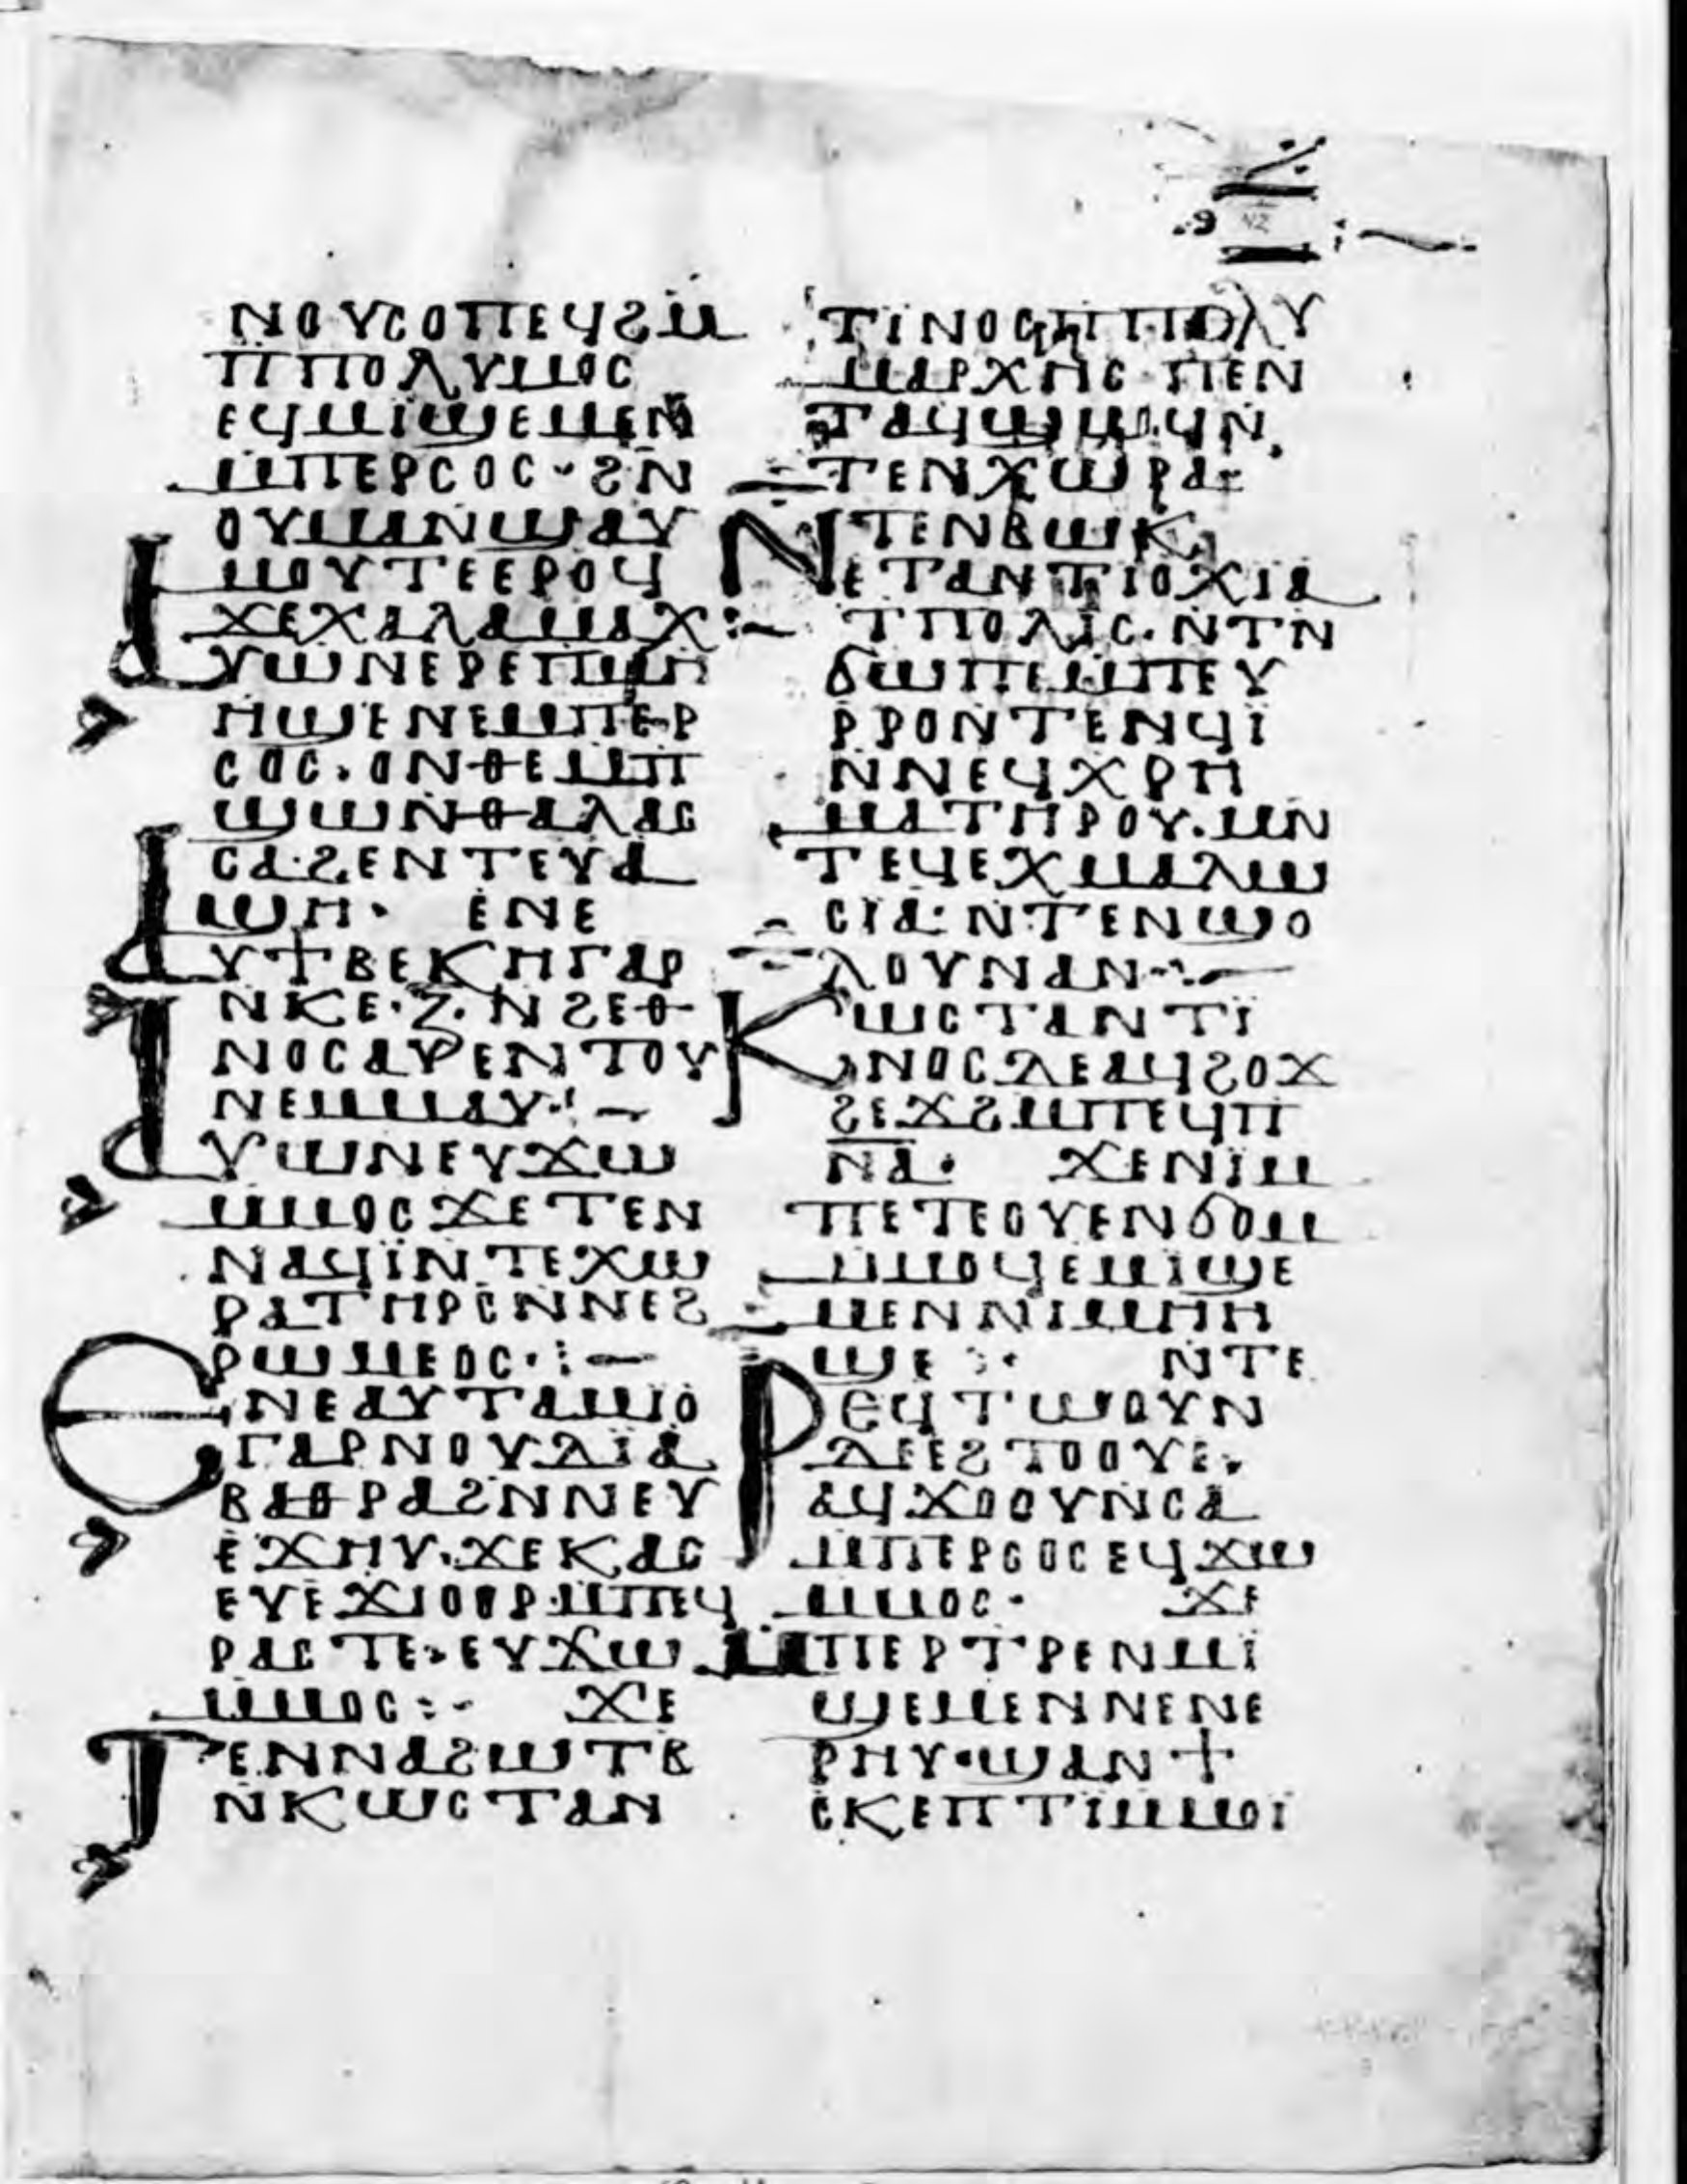 ⲛⲟⲩⲥⲟⲡⲉϥϩⲙ
ⲡⲡⲟⲗⲩⲙⲟⲥ
ⲉϥⲙⲓϣⲉⲙⲉⲛ
ⲙⲡⲉⲣⲥⲟⲥ· ϩⲛ
ⲟⲩⲙⲁⲛϣⲁⲩ
ⲙⲟⲩⲧⲉⲉⲣⲟϥ
ϫⲉⲭⲁⲗⲁⲙⲁⲭ:–
ⲁⲩⲱⲛⲉⲣⲉⲡⲙⲏ
ⲏϣⲉⲛⲉⲙⲡⲉⲣ
ⲥⲟⲥ·ⲟⲛⲑⲉⲙⲡ
ϣⲱⲛⲑⲁⲗⲁⲥ
ⲥⲁ·ϩⲉⲛⲧⲉⲩⲁ
ϣⲏ· ⲉⲛⲉ
ⲁⲩϯⲃⲉⲕⲏⲅⲁⲣ
ⲛⲕⲉ·ⲍ·ⲛϩⲉⲑ
ⲛⲟⲥⲁⲩⲉⲛⲧⲟⲩ
ⲛⲉⲙⲙⲁⲩ·:–
ⲁⲩⲱⲛⲉⲩϫⲱ
ⲙⲙⲟⲥϫⲉⲧⲉⲛ
ⲛⲁϥⲓ̈ⲛⲧⲉⲭⲱ
ⲣⲁⲧⲏⲣⲥⲛⲛⲉϩ
ⲣⲱⲙⲉⲟⲥ·:–
ⲉⲛⲉⲁⲩⲧⲁⲙⲓⲟ
ⲅⲁⲣⲛⲟⲩⲇⲓ̈ⲁ
ⲃⲁⲑⲣⲁϩⲛⲛⲉⲩ
ⲉϫⲏⲩ·ϫⲉⲕⲁⲥ
ⲉⲩⲉϫⲓⲟⲟⲣ·ⲙⲡⲉϥ
ⲣⲁⲥⲧⲉ·ⲉⲩϫⲱ
ⲙⲙⲟⲥ:· ϫⲉ
ⲧⲉⲛⲛⲁϩⲱⲧⲃ
ⲛⲕⲱⲥⲧⲁⲛ
ⲧⲓ̈ⲛⲟⲥⲡⲡⲟⲗⲩ
ⲙⲁⲣⲭⲏⲥ ⲡⲉⲛ
ⲧⲁϥϣⲱϥⲛ
ⲧⲉⲛⲭⲱⲣⲁ
ⲛⲧⲉⲛⲃⲱⲕ
ⲉⲧⲁⲛⲧⲓⲟⲭⲓⲁ
ⲧⲡⲟⲗⲓⲥ·ⲛⲧⲛ
ϭⲱⲡⲉⲙⲡⲉⲩ
ⲣⲣⲟⲛⲧⲉⲛϥⲓ̈
ⲛⲛⲉϥⲭⲣⲏ
ⲙⲁⲧⲏⲣⲟⲩ·ⲙⲛ
ⲧⲉϥⲉⲭⲙⲁⲗⲱ
ⲥⲓⲁ·ⲛⲧⲉⲛϣⲟ
ⲗⲟⲩⲛⲁⲛ·:–
ⲕⲱⲥⲧⲁⲛⲧⲓ̈
ⲛⲟⲥⲇⲉⲁϥϩⲟϫ
ϩⲉϫϩⲙⲡⲉϥⲡ
ⲛⲁ· ϫⲉⲛⲓⲙ
ⲡⲉⲧⲉⲟⲩⲉⲛϭⲟⲙ
ⲙⲙⲟϥⲉⲙⲓϣⲉ
ⲙⲉⲛⲛⲓⲙⲏⲏ
ϣⲉ:· ⲛⲧⲉ
ⲣⲉϥⲧⲱⲟⲩⲛ
ⲇⲉⲉϩⲧⲟⲟⲩⲉ·
ⲁϥϫⲟⲟⲩⲛⲥⲁ
ⲙⲡⲉⲣⲥⲟⲥⲉϥϫⲱ
ⲙⲙⲟⲥ· ϫⲉ
ⲙⲡⲉⲣⲧⲣⲉⲛⲙⲓ̈
ϣⲉⲙⲉⲛⲛⲉⲛⲉ
ⲣⲏⲩ·ϣⲁⲛϯ
ⲥⲕⲉⲡⲧⲓⲙⲙⲟⲓ̈